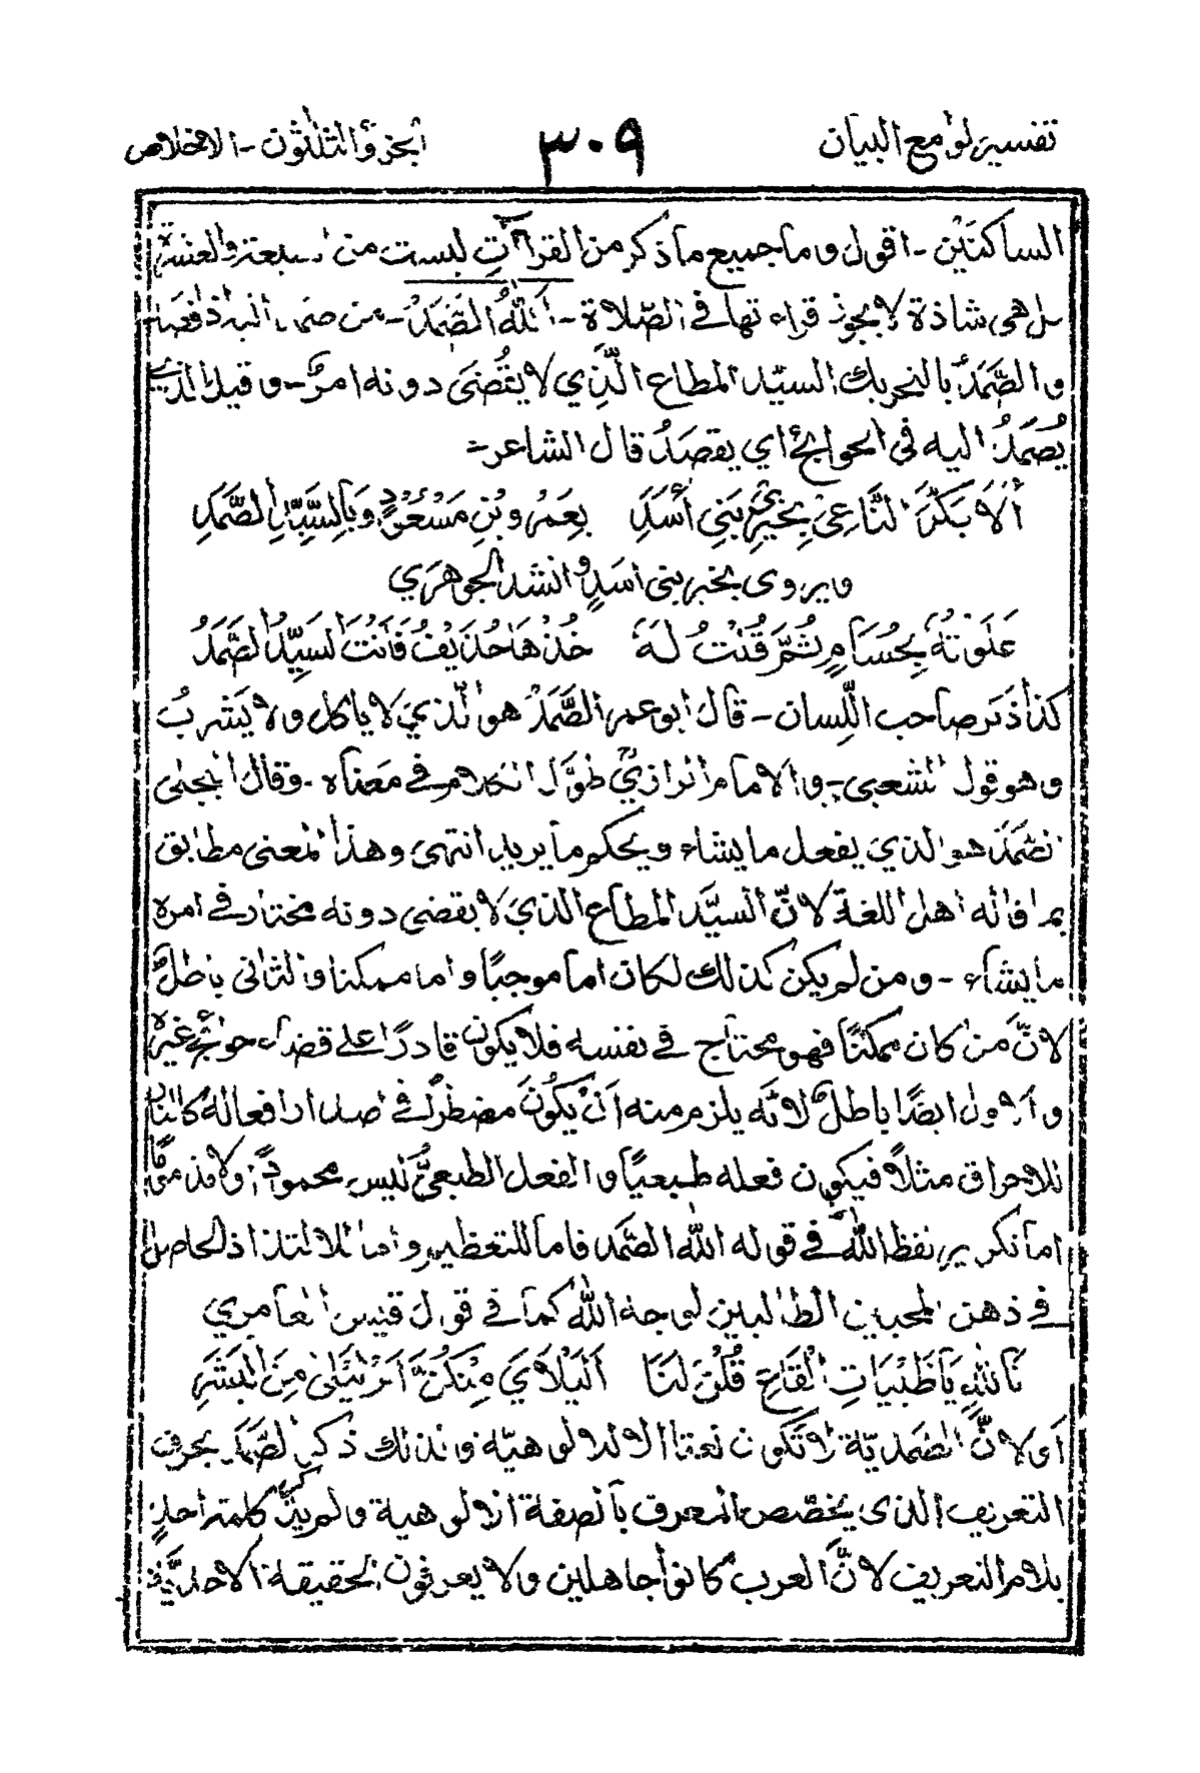 تفسير لوامع البيان ٣٠٩ الجزء الثلثون - الاخلاص
الساكنَيْن - اقول وما جميع ما ذكر من القرآتِ ليست من السبعة والعشرة
بل هى شاذة لا يجوز قراءتها في الصّلاة - اَللّٰهُ الصَّمَدُ - من صمد اليه اذا قصده
والصَّمَدُ بالتحريك السيّد المطاع الَّذِي لا يُقْضَى دونه امرٌ - وقيل الذي
يُصمَدُ اليه فى الحوائج أي يقصَدُ قال الشاعر -
أَلَا بَكَّرَ النَّاعِيْ بِخَيْرِيْ بَنِي أَسَدِ بِعَمْرِو بْنِ مَسْعُوْدٍ وَبِالسَّيِّدِ الصَّمَدِ
ويروى بخير بنى اسَدٍ وانشد الجوهَرَي
عَلَوْتُهُ بِحُسَامٍ ثُمَّ قُلْتُ لَهُ خُذْهَا حُذَيْفُ فَاَنْتَ السَيِّدُ الصَّمَدُ
كذا ذكر صاحب اللِّسان - قال ابو عمر الصَّمَدْ هو الّذيْ لا ياكل ولا يَشربُ
وهو قول الشعبى - والامام الرازيّ طوَّل الكلام في معناه - وقال البجلى
الصَّمَدُ هو الذي يفعل ما يشاء ويحكم ما يريد انتهى وهذا المعنى مطابق
بما قاله اهل اللغة لانّ السيّد المطاع الذي لا يقضى دونه مختار في امره
ما يشاء - ومن لم يكن كذلك لكان اما موجبًا واما ممكنا والثانى باطلٌ
لانّ من كان ممكنًا فهو محتاج في نفسه فلا يكون قادرًا على قضاء حوائج غيره
والاول ايضًا باطلٌ لانّه يلزم منه أنْ يكُوْنَ مضطراً في اصدار افعاله كالنار
للاحراق مثلاً فيكون فعله طبيعيًّا والفعل الطبعيُّ ليس محمودً ولا مذمومًا
اما تكرير لفظ اللّٰه في قوله اللّٰه الصَّمَد فاما للتعظيم واما للالتذاذ الحاصل
في ذهن المحبين الطالبين لوجه اللّٰه كما في قول قيس العامري
تَاللّٰهِ يَا ظَبْيَاتِ الْقَاعِ قُلْنَ لَنَا اَلَيْلَايَ مِنْكُنَّ اَمْ لَيْلٰى مِنَ الْبَشَرِ
اى لانَّ الصمديّة لا تكون نعتا الا للالوهيّة ولذلك ذكر الصَّمَد بحرف
التعريف الذى يخصّص المعرف بالصفة الالوهية ولم يذكر كلمة احدٍ
بلام التعريف لانَّ العرب كانوا جاهلين ولا يعرفون الحقيقة الاحديَّة